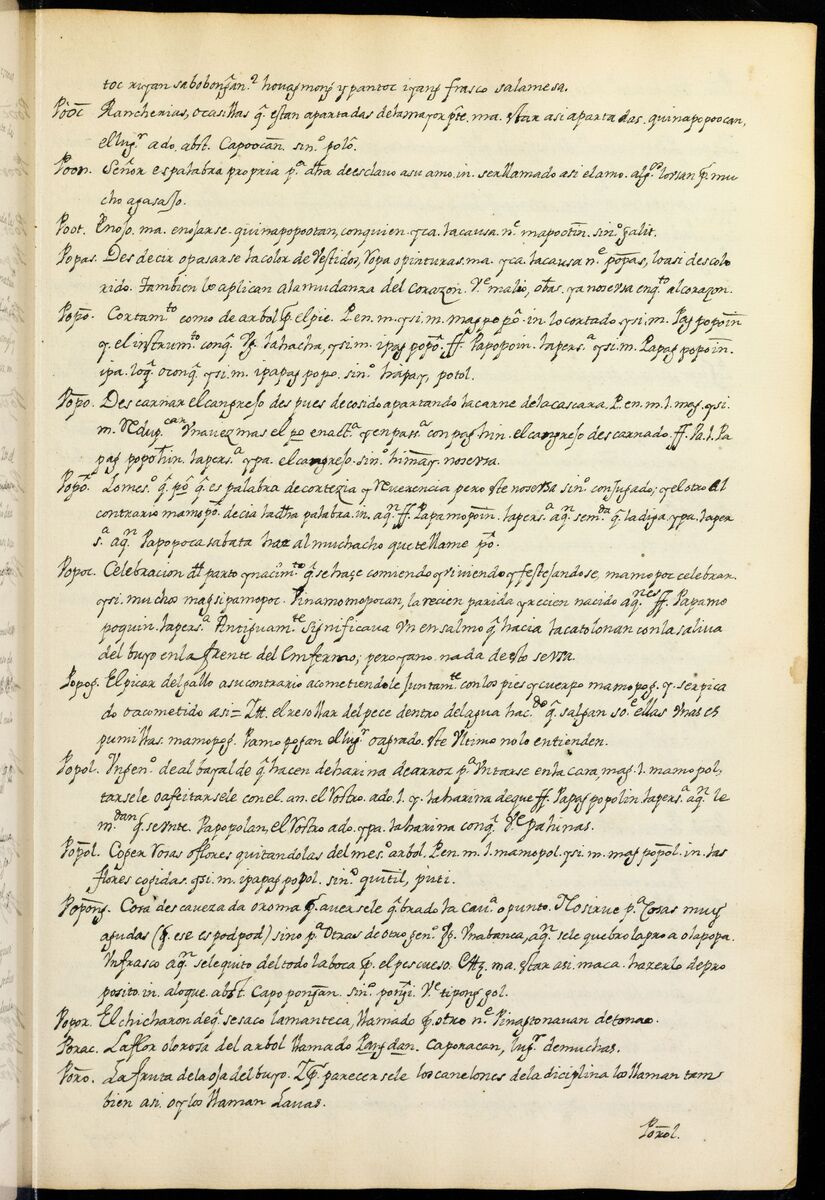 toc riyan sabobongan.ª houag mong y pantoc iyang frasco salamesa.
Pôoc Rancherias, o casillas q̃. estan apartadas dela mayor pte. ma. star asi apartadas. quinapopoocan,
el lugr. ado. abst. Capoocan. sino. polô.
Poon. Señor es palabra propria pa. dha de esclavo asu amo. in. ser llamado asi el amo. algos. lo vsan p̃. mu
cho agasajo.
Poot. Enojo. ma. enojarse. quinapopootan, con quien. y ca. la causa. ne. mapootin. sino. galit.
Popas. Des decir o pasarse la color de vestidos, Ropa o pinturas. ma. y ca. la causa ne. popas, lo asi descolo
rido. Tambien lo aplican ala mudanza del corazon. Ve. malio, obas. ya no se vsa enqto. al corazon.
Popo. Cortamto. como de arbol p̃. el pie. P. en. m. y si. m. mag popo. in. lo cortado. y si. m. Pag popoin
y. el instrumto. con q̃. Vg. la hacha, y si. m. ipag popo. ff. Papopoin. la persa. y si. m. Papag popoin.
ipa. lo q̃. o con q̃. y si. m. ipapag popo. sino. hapay, potol.
Popo. Des carnar el cangrejo des pues de cosido apartando la carne dela cascara. P. en. m. l. mag. y si.
m. Redupcar. vna vez mas el po en acta. y en passa. con pag hin. el cangrejo descarnado. ff. Pa. l. Pa
pag popohin. la persa. y pa. el cangrejo. sino. himay. no se vsa.
Popo. Lo meso. q̃. po q̃. es palabra de cortezia y Reverencia pero ste no se vsa sino. conjugado; y el otro al
contrario mamopo. decia la dha palabra. in. aqn. ff. Papamopoin. la persa. aqn. semda. q̃. la diga. y pa. la per
sa. aqn. Papopoca sa bata haz al muchacho que te llame po.
Popoc. Celebracion dl parto y nacimto. q̃. se haçe comiendo y viviendo y festejandose, mamopoc celebran.
y si. muchos mag si pamopoc. Pinamomopocan, la recien parida y recien nacido aqnes. ff. Papamo
poquin. la persa. Antiguamte. significava vn ensalmo q̃. hacia la catolonan con la saliva
del buyo en la frente del Enfermo; pero ya no. nada de sto se vsa.
Popog. El picar del gallo asu contrario acometiendole juntamte. con los pies y cuerpo mamopog. y. ser pica
do o acometido asi = Itt. el resollar del pece dentro del agua hacdo. q̃. salgan soe. ellas vnas es
pumillas. mamopog. Pamopogan el lugr. o agrado. ste vltimo no lo entienden.
Popol. Vn geno. de albayalde q̃. hacen de harina de arroz pa. vntarse en la cara, mag. l. mamopol,
társele o afeitársele con el. an. el Rostro. ado. l. y la harina de que ff. Papag popolin. la persa. aqn. le
mdan. q̃. se vnte. Papopolan, el Rostro ado. y pa. la harina con q̃. Ve. pahinas.
Popol. Coger Rosas o flores quitandolas del meso. arbol. P. en. m. l. mamopol. y si. m. mag popol. in. las
flores cogidas. y si. m. ipapag popol. sino. quitil, puti.
Popong. Cosa descavezada o roma p̃. aversele q̃brado la cava. o punto. No sirve pa. cosas muy
agudas (q̃. ese es podpod) sino pa. otras de otro geno. Vg. Vna banca, aqn. se le quebro la proa o la popa.
Vn frasco aqn. se le quito del todo la boca p̃. el pescueso. Ettz. ma. star asi. maca. hazerlo de pro
posito. in. a lo que. abst. Capopongan. sino. pongi. Ve. tipong gol.
Popor. El chicharon de q̃. se saco la manteca, llamado p̃. otro ne. Pinagtonauan de tonao.
Porac. La flor olorosa del arbol llamado Pangdan. Caporacan, lugr. de muchas.
Poro. La fruta dela oja del buyo. I p̃. parecersele los canelones dela diciplina los llaman tam
bien asi. oy los llaman Lauas.
Porol.